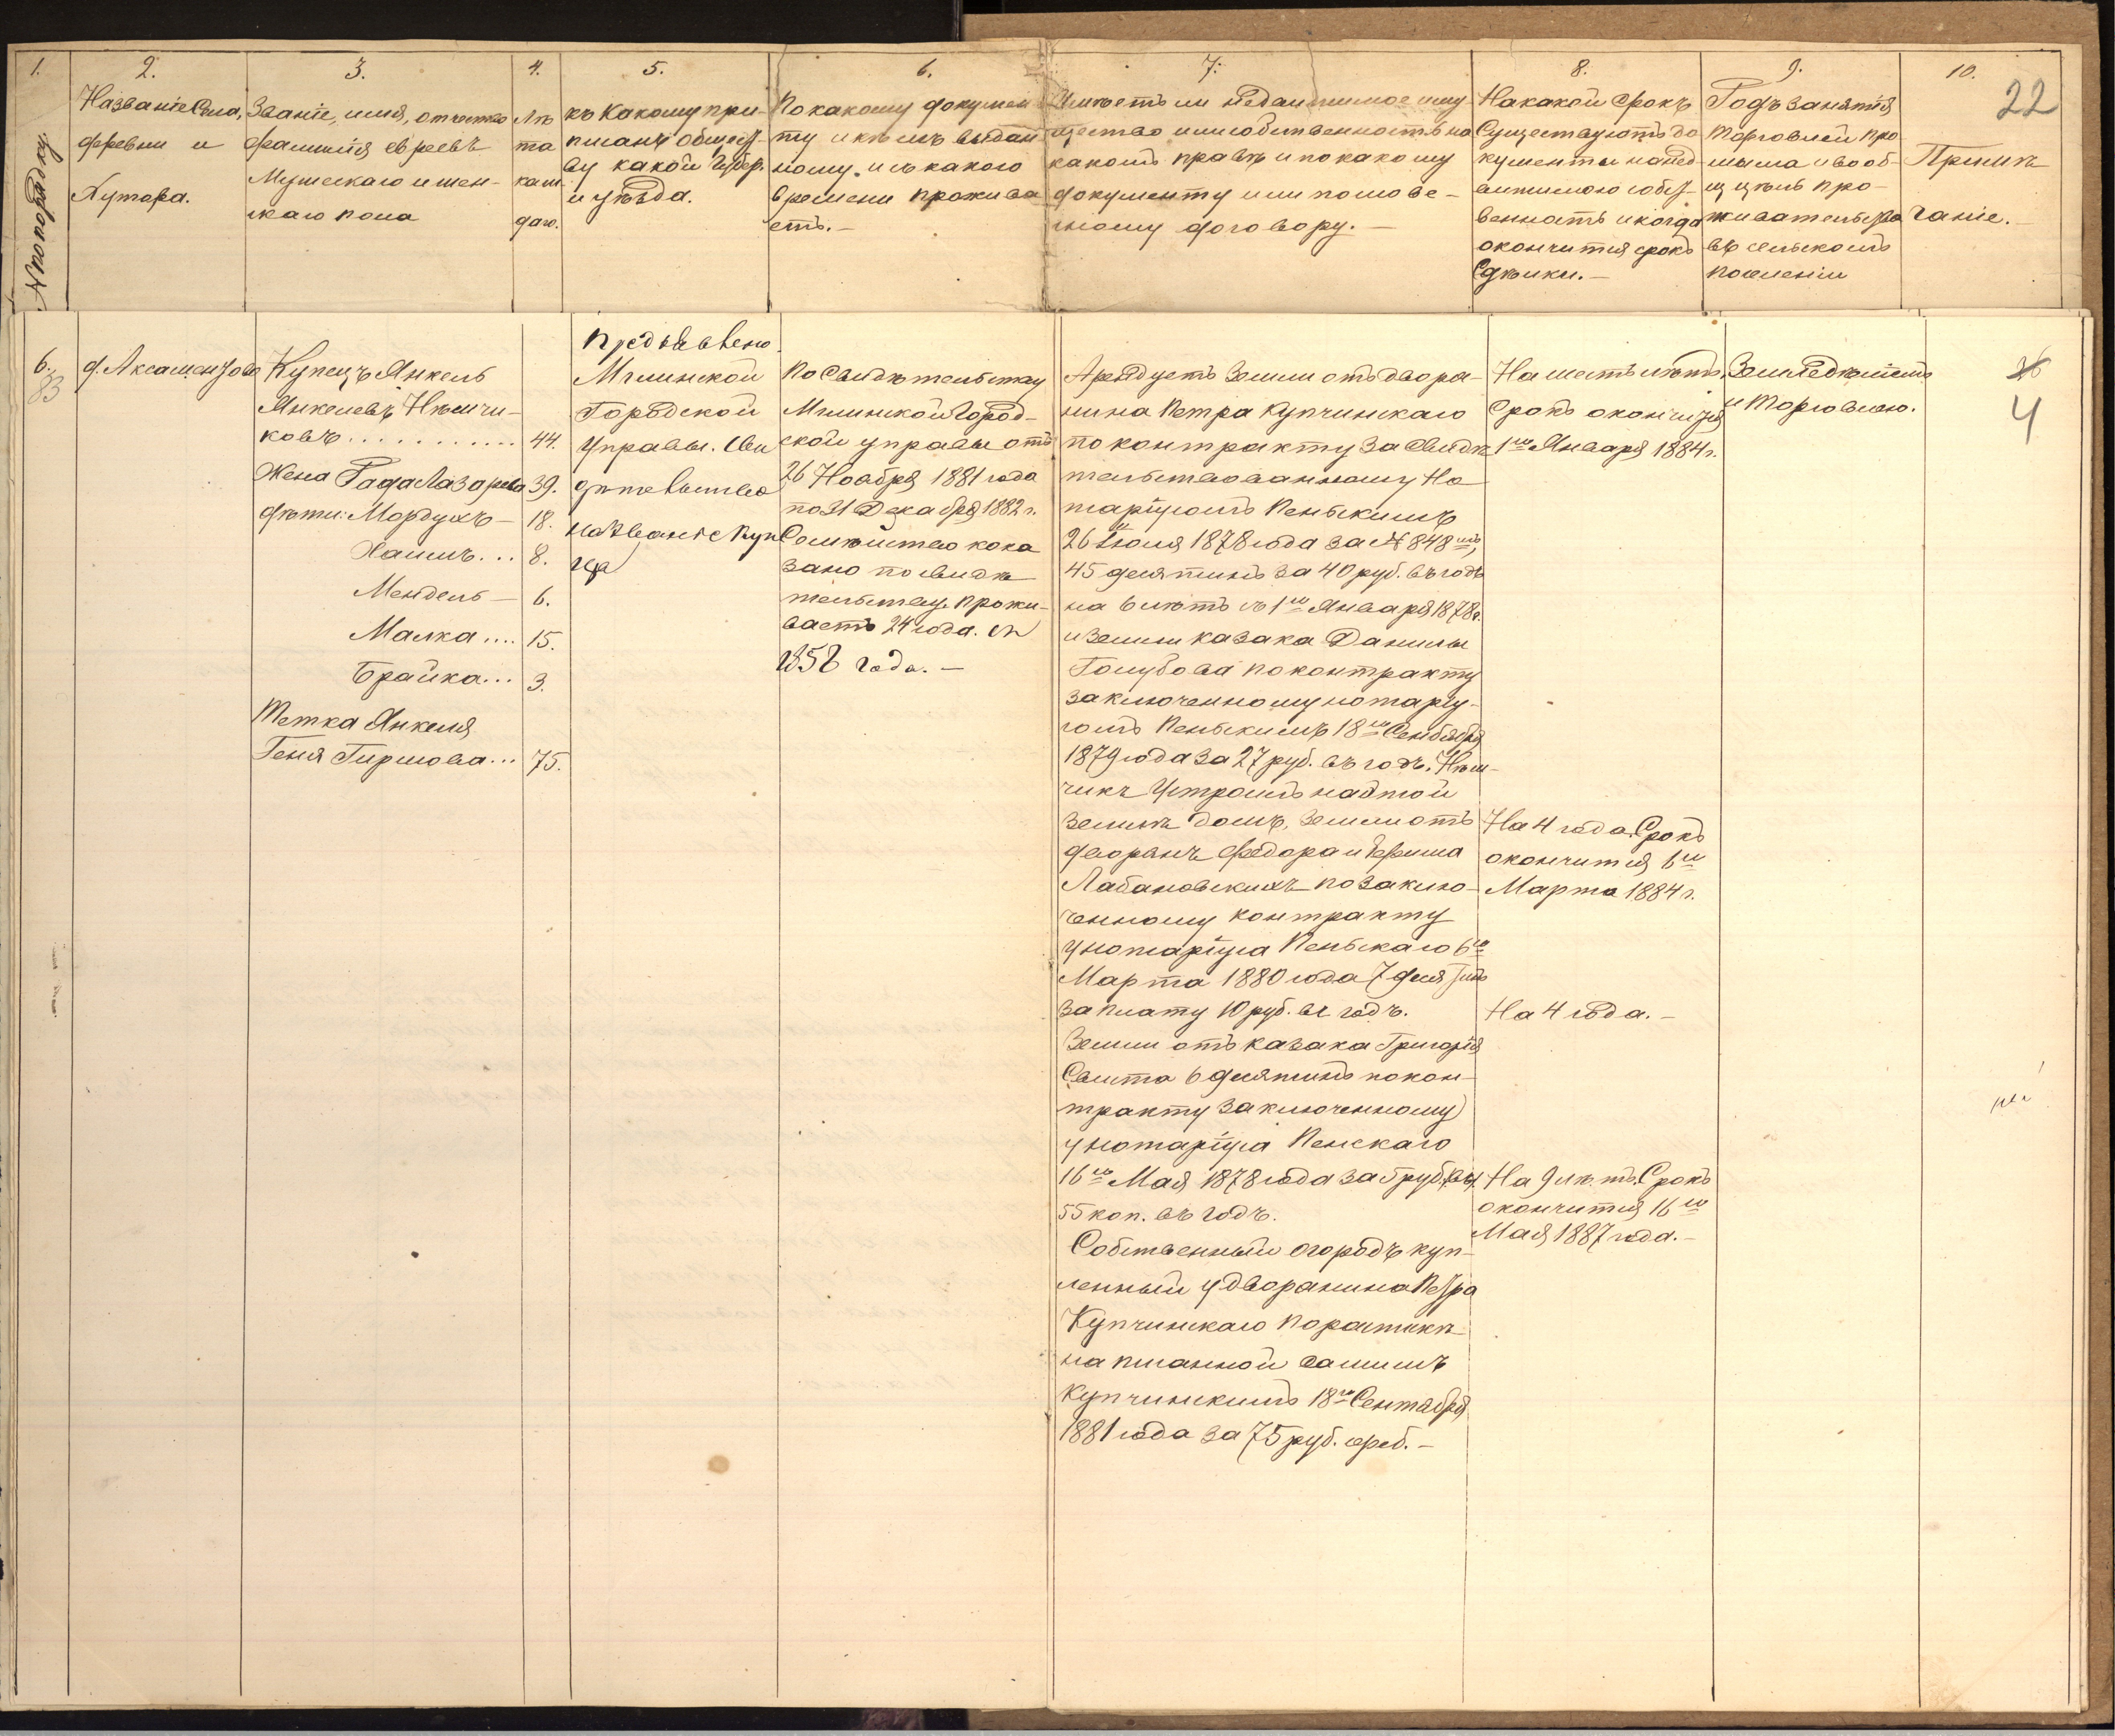 1.
2.
3.
4.
5.
6.
7.
8.
9.
10.
22
№ по порядку
Названіе Села,
деревни и
Хутора.
Званіе, имя, отчество
фамилія евреевъ
Мужескаго и жен-
скаго пола
Лѣ
та
каж
даго.
къ Какому при-
писанъ общест-
ву какой Губер.
и уѣзда.
По какому докумен
ту и кѣмъ выдан
ному. и съ какого
времени прожива
етъ.—
Имѣетъ ли недвижимое иму
щество или собственность на
какомъ правѣ и по какому
документу или полове-
сному договору.—
На какой срокъ
Существуютъ до
кументы на нед
вижимою собст
венность и когда
окончится срокъ
Сдѣлки.—
Родъ занятія
торговлей про
мысла и вооб-
щ цѣль про-
живательства
въ сельскомъ
поселеніи
Примѣ
чаніе.
6.
83
д. Аксаментово
Купецъ Янкель
Янкелевъ Нѣмчи-
ковъ . . . . . . . . . . . 44.
Жена Рада Лазарева 39.
дѣти: Мордухъ — 18.
Хаимъ . . . 8.
Мендель — 6.
Малка . . . . 15.
Брайка . . . 3.
Тетка Янкеля
Геня Гиршова . . . 75.
Предъявлено
Мглинской
Городской
Управы. Сви
дѣтельство
на званіе Куп
ца
По Свидѣтельству
Мглинской Город-
ской управы отъ
26 Ноября 1881 года
по 31 Декабря 1882 г.
Семѣйство пока
зано по свидѣ
тельству. Прожи-
ваетъ 24 года. съ
1858 года.—
Арендуетъ Земли отъ дворя-
нина Петра Купчинскаго
по контракту Засвидѣ
тельствованному Но
таріусомъ Пенскимъ
26 Іюля 1878 года за № 848мъ,
45 десятинъ за 40 руб. въ годъ
на 6 лѣтъ съ 1го Января 1878 г.
и земли казака Данилы
Голубова по контракту
заключенному нотаріу-
сомъ Пенскимъ 18го Сентября
1879 года за 27 руб. въ годъ. Нѣм-
чикъ Устроилъ на этой
землѣ домъ. Земли отъ
дворянъ Федора и
Лабановскихъ по заклю-
ченному контракту
у нотаріуса Пенскаго 6го
Марта 1880 года 7 десятинъ
за плату 10 руб. въ годъ.
Земли отъ казака Григорія
Свита 6 десятинъ по кон-
тракту заключенному
у нотаріуса Пенскаго
16го Мая 1878 года за 5 руб.
55 коп. въ годъ.
Собственный огородъ куп-
ленный у дворянина Петра
Купчинскаго по роспискѣ
написанной самимъ
Купчинскимъ 18го Сентября
1881 года за 75 руб. сереб.—
На шесть лѣтъ.
Срокъ окончится
1го Января 1884 г.
На 4 года. Срокъ
окончится 6го
Марта 1884 г.
На 4 года.—
На 9 лѣтъ. Срокъ
окончится 16го
Мая 1887 года.—
Земледѣліемъ
и Торговлею.
4